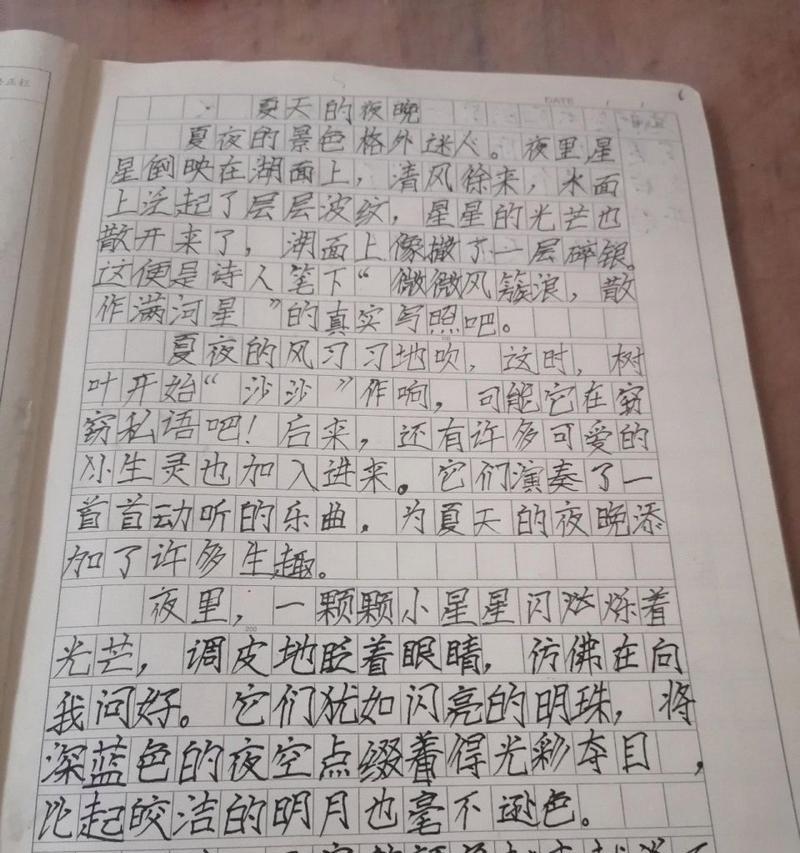 DATE / /
夏天的夜晚
夏夜的景色格外迷人。夜里,星
星倒映在湖面上，清风徐来，水面
上泛起了层层波纹，星星的光芒也
散开来了，湖面上像撒了一层碎银。
这便是诗人笔下“微微风簇浪，散
作满河星”的真实写照吧。
夏夜的风习习地吹，这时，树
叶开始“沙沙”作响，可能它在窃
窃私语吧！后来，还有许多可爱的
小生灵也加入进来。它们演奏了一
首首动听的乐曲，为夏天的夜晚添
加了许多生趣。
夜里，一颗颗小星星闪烁着
光芒，调皮地眨着眼睛，仿佛在向
我问好。它们犹如闪亮的明珠，将
200
深蓝色的夜空点缀着得光彩夺目，
比起皎洁的明月也毫不逊色。